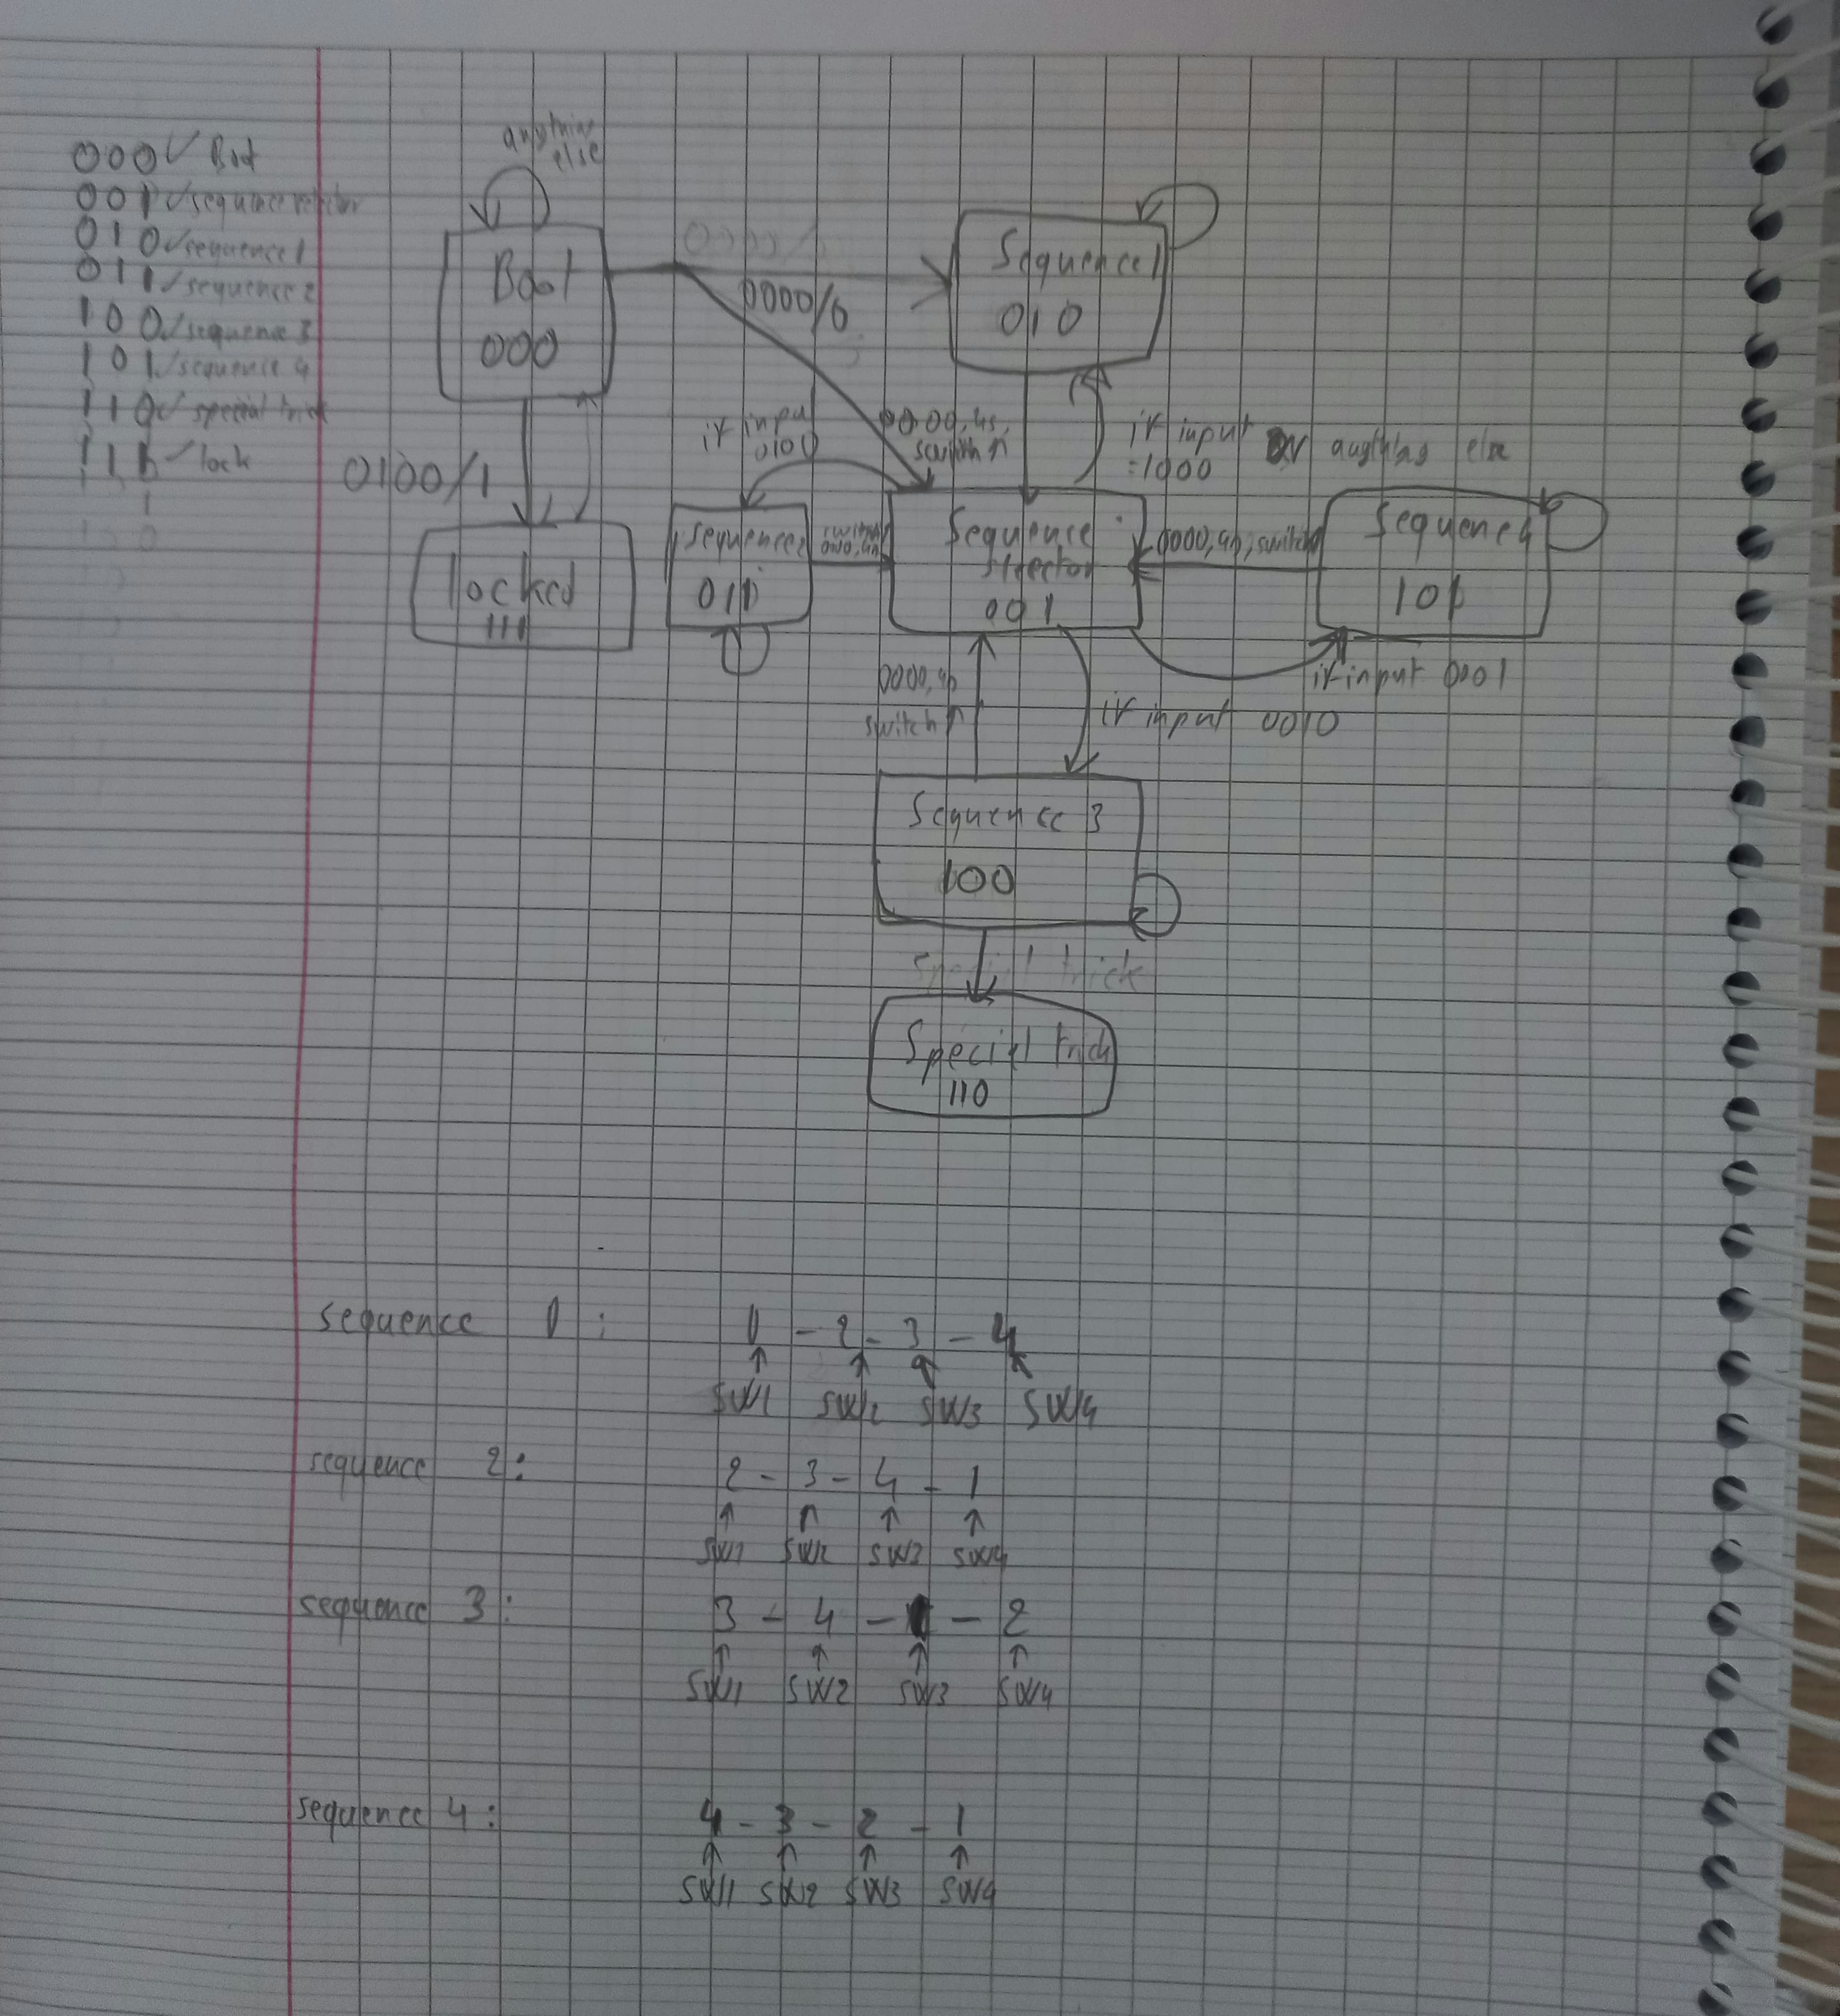 000 / Boot
001 /sequence
010 /sequence 1
011 /sequence 2
100 /sequence 3
101 /sequence 4
110 / special trick
111 - lock
anything
else
Boot
000
0000/0
Sequence 1
010
if input
0100
0000,
switch
if input or anything else
=1000
0100/1
locked
111
sequence 2
011
switch
Sequence
001
0000, switch
Sequence 4
101
if input 0001
0000,
switch
if input 0010
Sequence 3
100
Special trick
Special trick
110
sequence 1 :
1 - 2 - 3 - 4
SW1 SW2 SW3 SW4
sequence 2 :
2 - 3 - 4 - 1
SW1 SW2 SW3 SW4
sequence 3 :
3 - 4 - 1 - 2
SW1 SW2 SW3 SW4
sequence 4 :
4 - 3 - 2 - 1
SW1 SW2 SW3 SW4